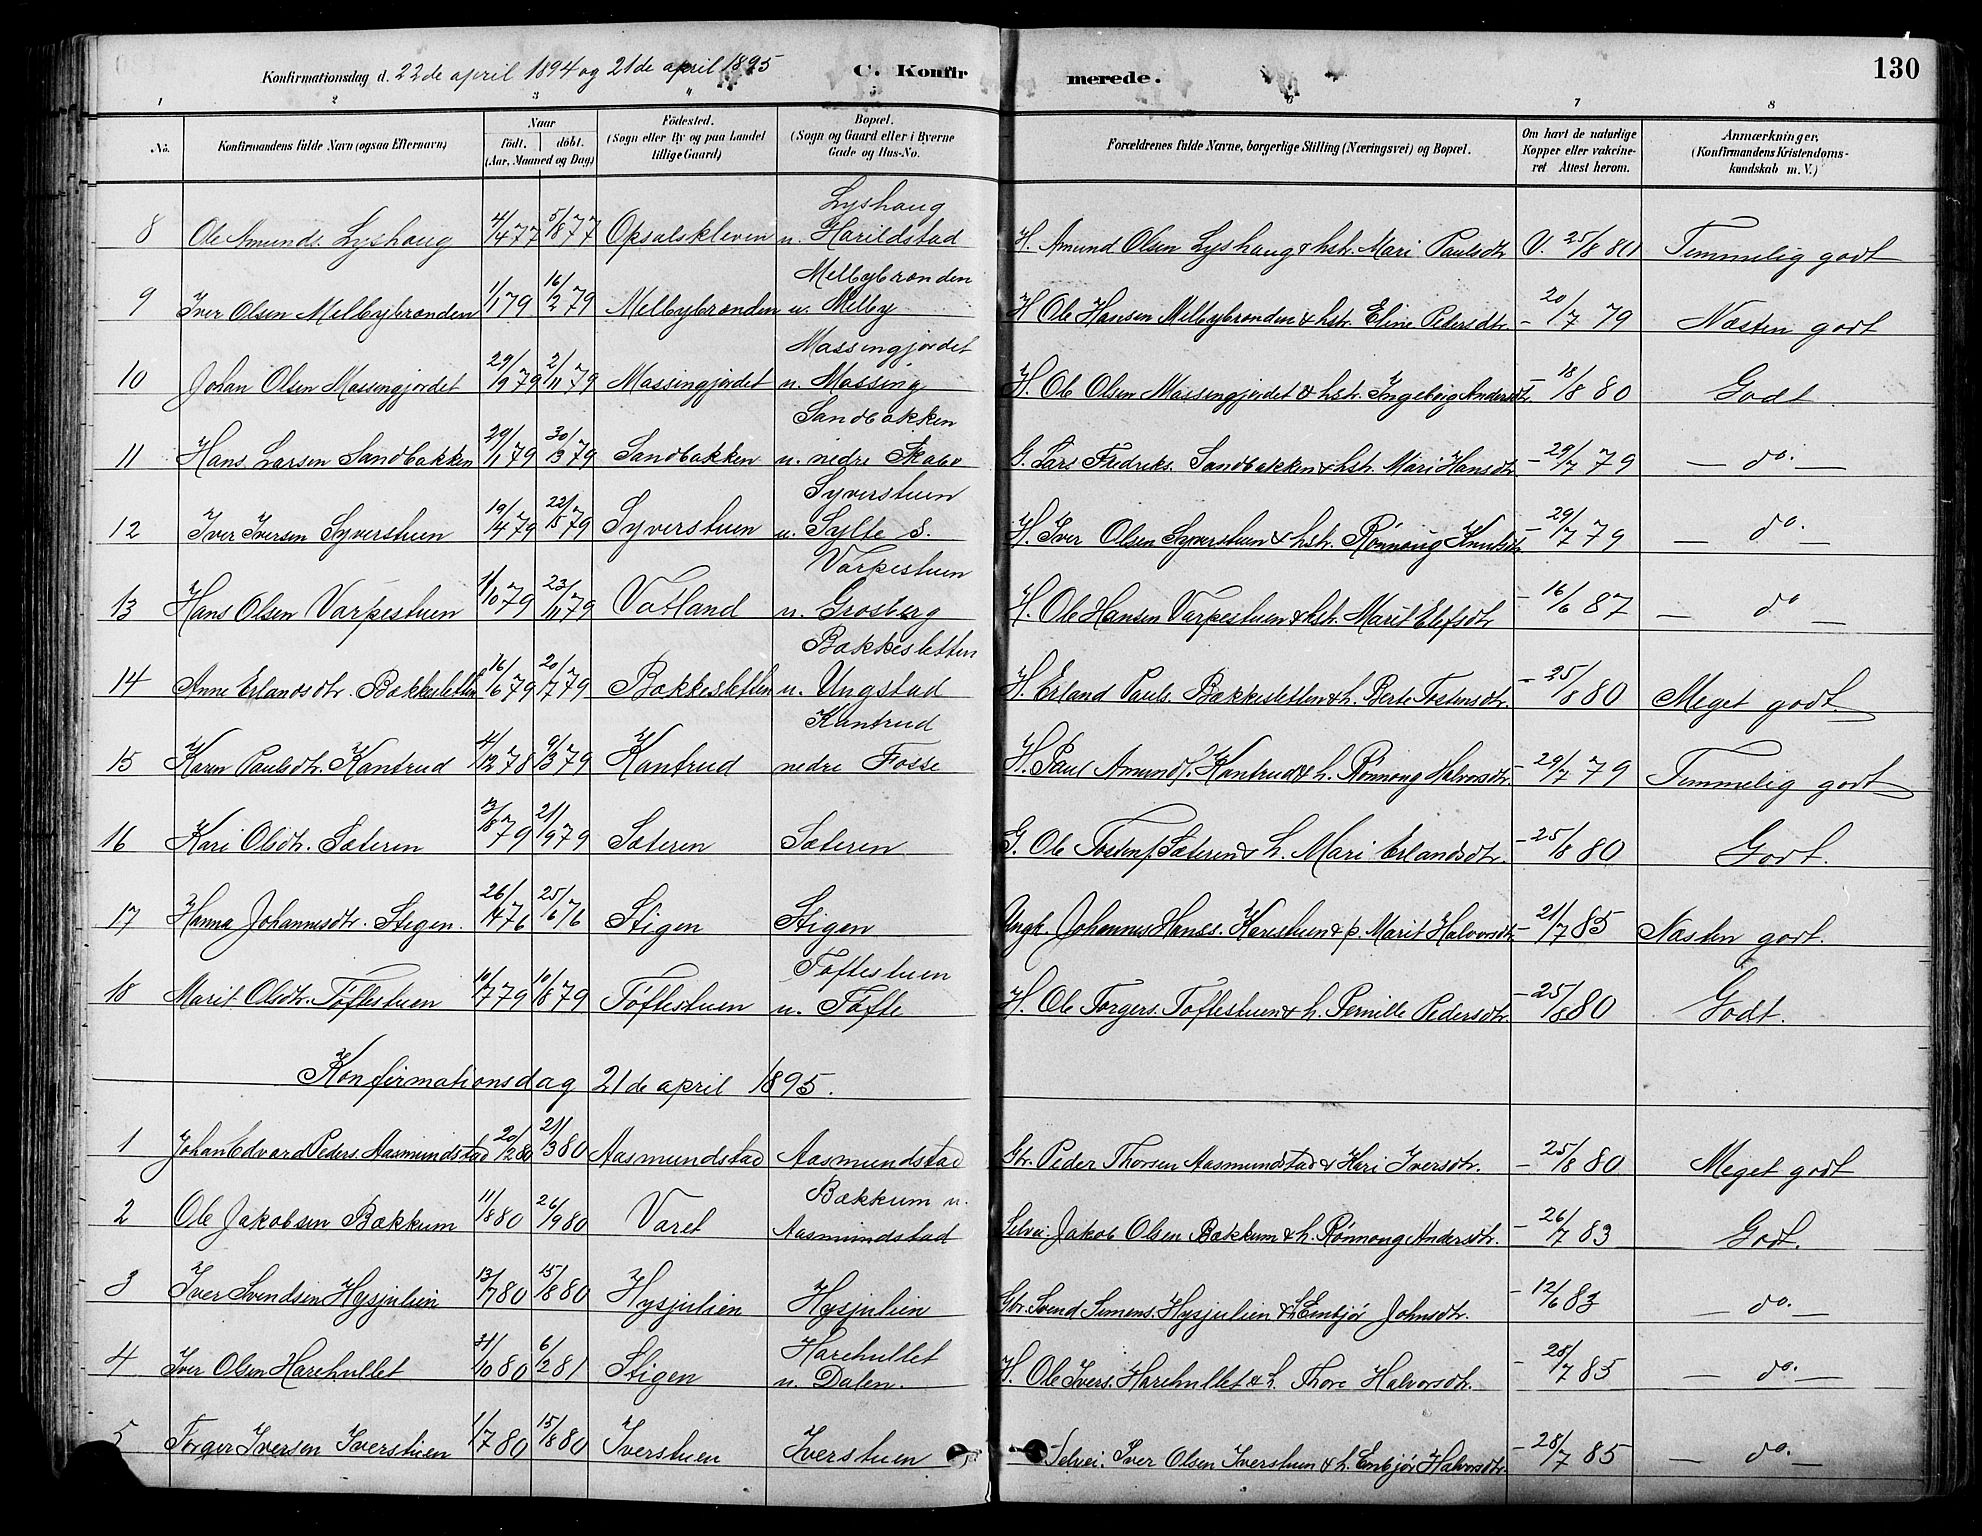 130
Konfirmationsdag d. 22de april 1894 og 21de april 1895 C. Konfirmerede.
1 2 3 4 5 6 7 8
No. Konfirmandens fulde Navn (ogsaa Efternavn) Naar født. døbt. (Aar, Maaned og Dag) Fødested. (Sogn eller By og paa Landet tillige Gaard) Bopæl. (Sogn og Gaard eller i Byerne Gade og Hus-No. Forældrenes fulde Navne, borgerlige Stilling (Næringsvei) og Bopæl. Om havt de naturlige Kopper eller vakcineret Attest herom. Anmærkninger. (Konfirmandens Kristendomskundskab m. V.)
8 Ole Amunds. Lyshaug 4/4 77 5/8 77 Opsalskleven Lyshaug u. Harildstad H. Amund Olsen Lyshaug & hstr. Mari Paulsdtr V. 25/8 80 Temmelig godt
9 Iver Olsen Melbybrænden 1/1 79 16/2 79 Melbybrænden Melbybrænden u. Melby H. Ole Hansen Melbybrænden & hstr. Eline Pedersdtr. - 20/7 79 Næsten godt
10 Johan Olsen Massingjordet 29/9 79 2/11 79 Massingjordet Massingjordet u. Massing H. Ole Olsen Massingjordet & hstr. Ingeborg Andersdtr. - 18/8 80 Godt
11 Hans Larsen Sandbakken 29/1 79 30/3 79 Sandbakken Sandbakken u. nedre Skabo G. Lars Fredriks. Sandbakken & hstr. Mari Hansdtr - 29/7 79 — do. —
12 Iver Iversen Syverstuen 19/4 79 22/5 79 Syverstuen Syverstuen u. Sylte S. H. Iver Olsen Syverstuen & hstr. Rønnaug Knutsdtr. - 29/7 79 — do. —
13 Hans Olsen Varpestuen 1/10 79 23/11 79 Vatland Varpestuen u. Grosberg H. Ole Hansen Varpestuen & hstr. Marit Elefsdtr - 16/6 87 — do —
14 Anne Erlandsdtr. Bakkesletten 16/6 79 20/7 79 Bakkesletten Bakkesletten u. Ungstad H. Erland Pauls. Bakkesletten & h. Berte Tostensdtr. - 25/8 80 Meget godt.
15 Karen Paulsdtr. Kantrud 4/12 78 9/3 79 Kantrud Kantrud nedre Fosse H. Paul Amunds. Kantrud & h. Rønnaug Halvorsdtr. - 29/7 79 Temmelig godt
16 Kari Olsdtr. Sæteren 13/8 79 21/9 79 Sæteren Sæteren G. Ole Tostens. Sæteren & h. Mari Erlandsdtr. - 25/8 80 Godt.
17 Hanna Johannesdtr. Stigen. 26/4 76 25/6 76 Stigen Stigen Ungk. Johannes Hanss. Karistuen & p. Marit Halvorsdtr. - 21/7 85 Næsten godt.
18 Marit Olsdtr. Toftestuen 10/7 79 10/8 79 Toftestuen Toftestuen u. Tofte H. Ole Torgers. Toftestuen & h. Pernille Pedersdtr. - 25/8 80 Godt.
Konfirmationsdag 21de april 1895.
1 Johan Edvard Peders. Aasmundstad 20/2 80 21/3 80 Aasmundstad Aasmundstad Gbr. Peder Thorsen Aasmundstad & Kari Iversdtr. - 25/8 80 Meget godt
2 Ole Jakobsen Bækkum 11/8 80 26/9 80 Varet Bækkum u. Aasmundstad Selvei. Jakob Olsen Bækkum & h. Rønnaug Andersdtr. - 26/7 83 Godt.
3 Iver Svendsen Hysjulien 13/7 80 15/8 80 Hysjulien Hysjulien Gbr. Svend Simens. Hysjulien & h. Embjør Johnsdtr. - 12/6 83 — do. —
4 Iver Olsen Harehullet 21/10 80 6/2 81 Stigen Harehullet u. Dalen. H. Ole Ivers. Harehullet & h. Thore Halvorsdtr. - 28/7 85 — do. —
5 Torger Iversen Iverstuen 1/7 80 15/8 80 Iverstuen Iverstuen Selvei. Iver Olsen Iverstuen & h. Embjør Halvorsdtr. - 28/7 85 — do. —